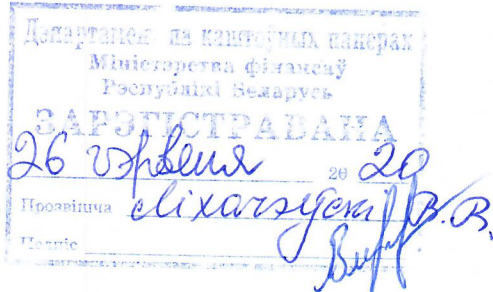 Дэпартамент па каштоўных паперах
Міністэрства фінансаў
Рэспублікі Беларусь
ЗАРЭГІСТРАВАНА
26 чэрвеня 20 20
Прозвішча Ліхачэўскі В.В.
Подпіс